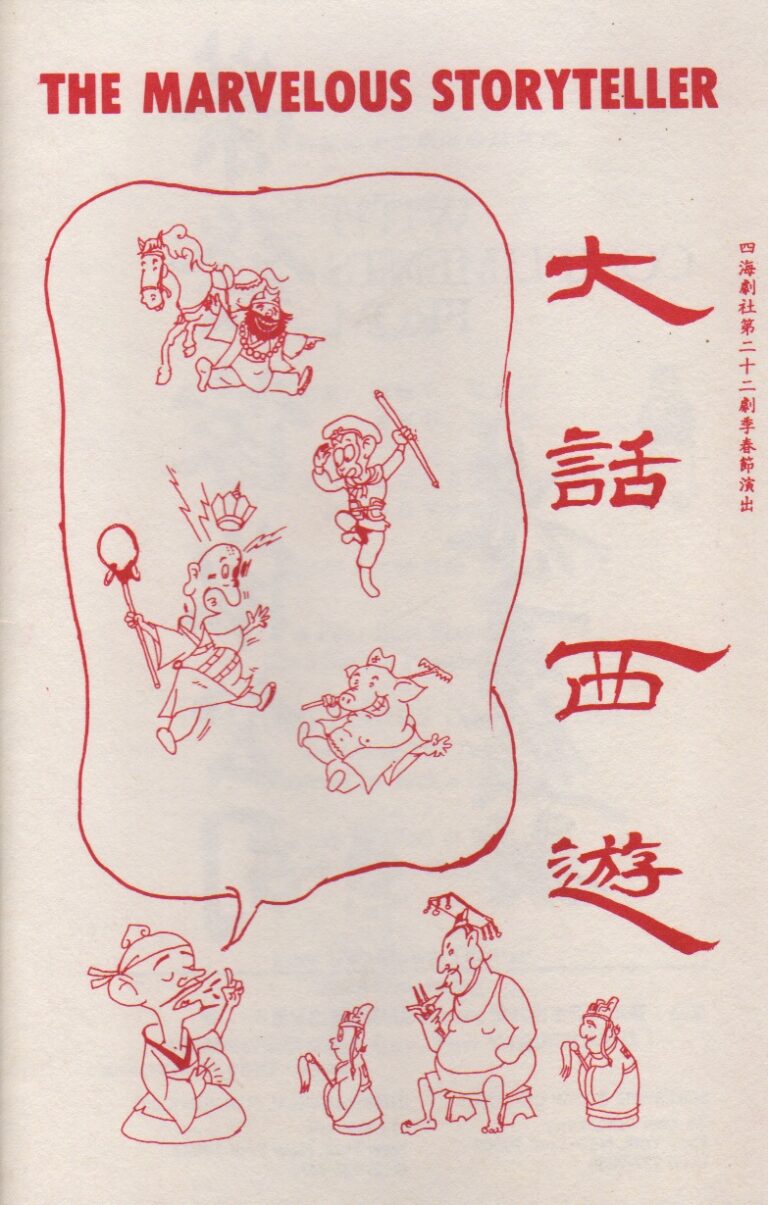 THE MARVELOUS STORYTELLER
大話西遊
四海劇社第二十二劇季春節演出